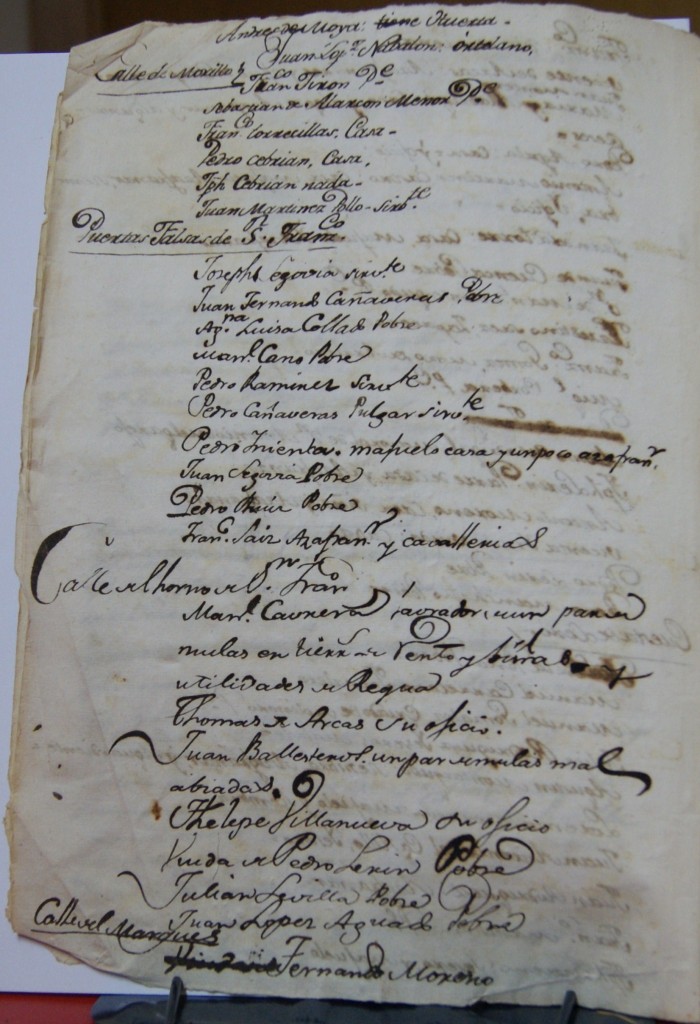 Andres de Moya: tiene Huerta.
Juan Lop.z Nabalon: ortelano,
Calle de Morillo
Fran.co Tiron P.e
Sebastian de Alarcon Menor P.e
Fran.co torrecillas, Casa.
Pedro Cebrian, Casa,
Jph Cebrian nada.
Juan Martinez Pollo. sirv.te
Puertas Falsas de S. Fran.co
Joseph Segovia sirv.te
Juan Fernand Cañaveras Pobre
Ag.na Luisa Collado Pobre
Man.l Cano Pobre
Pedro Ramirez Sirv.te
Pedro Cañaveras Pulgar sirv.te
Pedro Iniesta. majuelo casa y un poco azafran.
Juan Segovia Pobre
Pedro Ruiz Pobre
Fran.co Saiz Azafran y cavallerias
Calle del horno de Dn. Fran.
Man.l labrador, un par de
mulas en tierra de Vento y
utilidades de Requa
Thomas de Arcas su oficio.
Juan Ballesteros. un par de mulas mal
abiadas.
Phelipe Villanueva su oficio
Viuda de Pedro Lerin Pobre
Julian Sevilla Pobre
Juan Lopez Aguado Pobre
Calle del Marques
Fernando Moreno